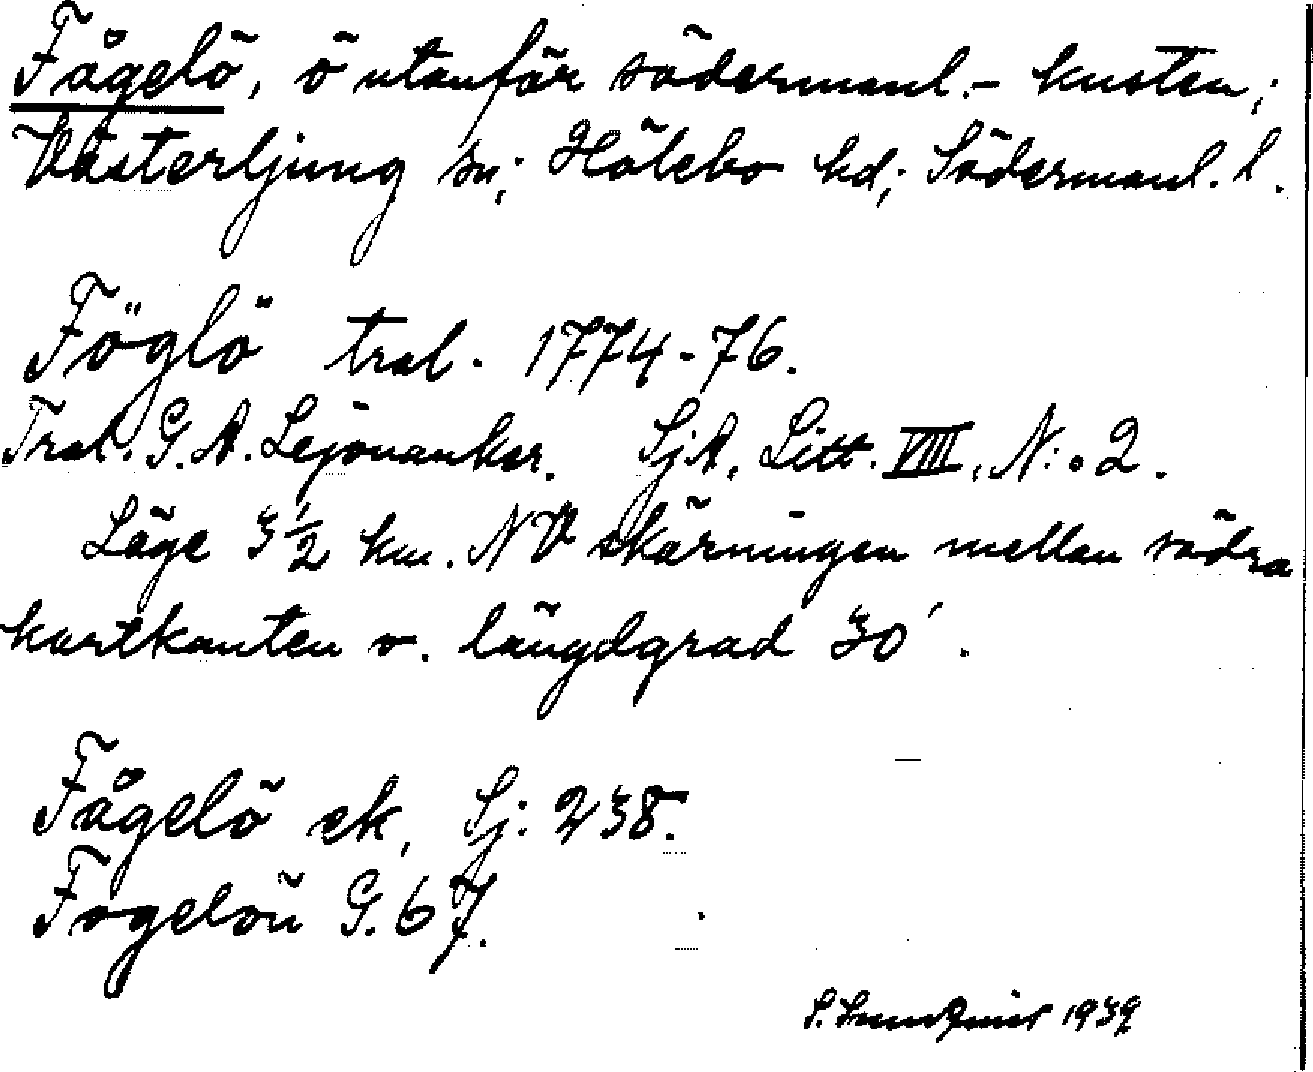 Fågelö, ö utanför södermanl.- kusten;
Västerljung sn; Hölebo hd; Södermanl. l.
Föglö tral. 1774-76.
Tral. G. A. Lejonanker. SjA, Litt. VIII, N:o 2.
Läge 3½ km. NV skärningen mellan södra
kartkanten o. längdgrad 30'.
Fågelö ek, Sj: 238.
Fogelön G. 67.
S. 1939